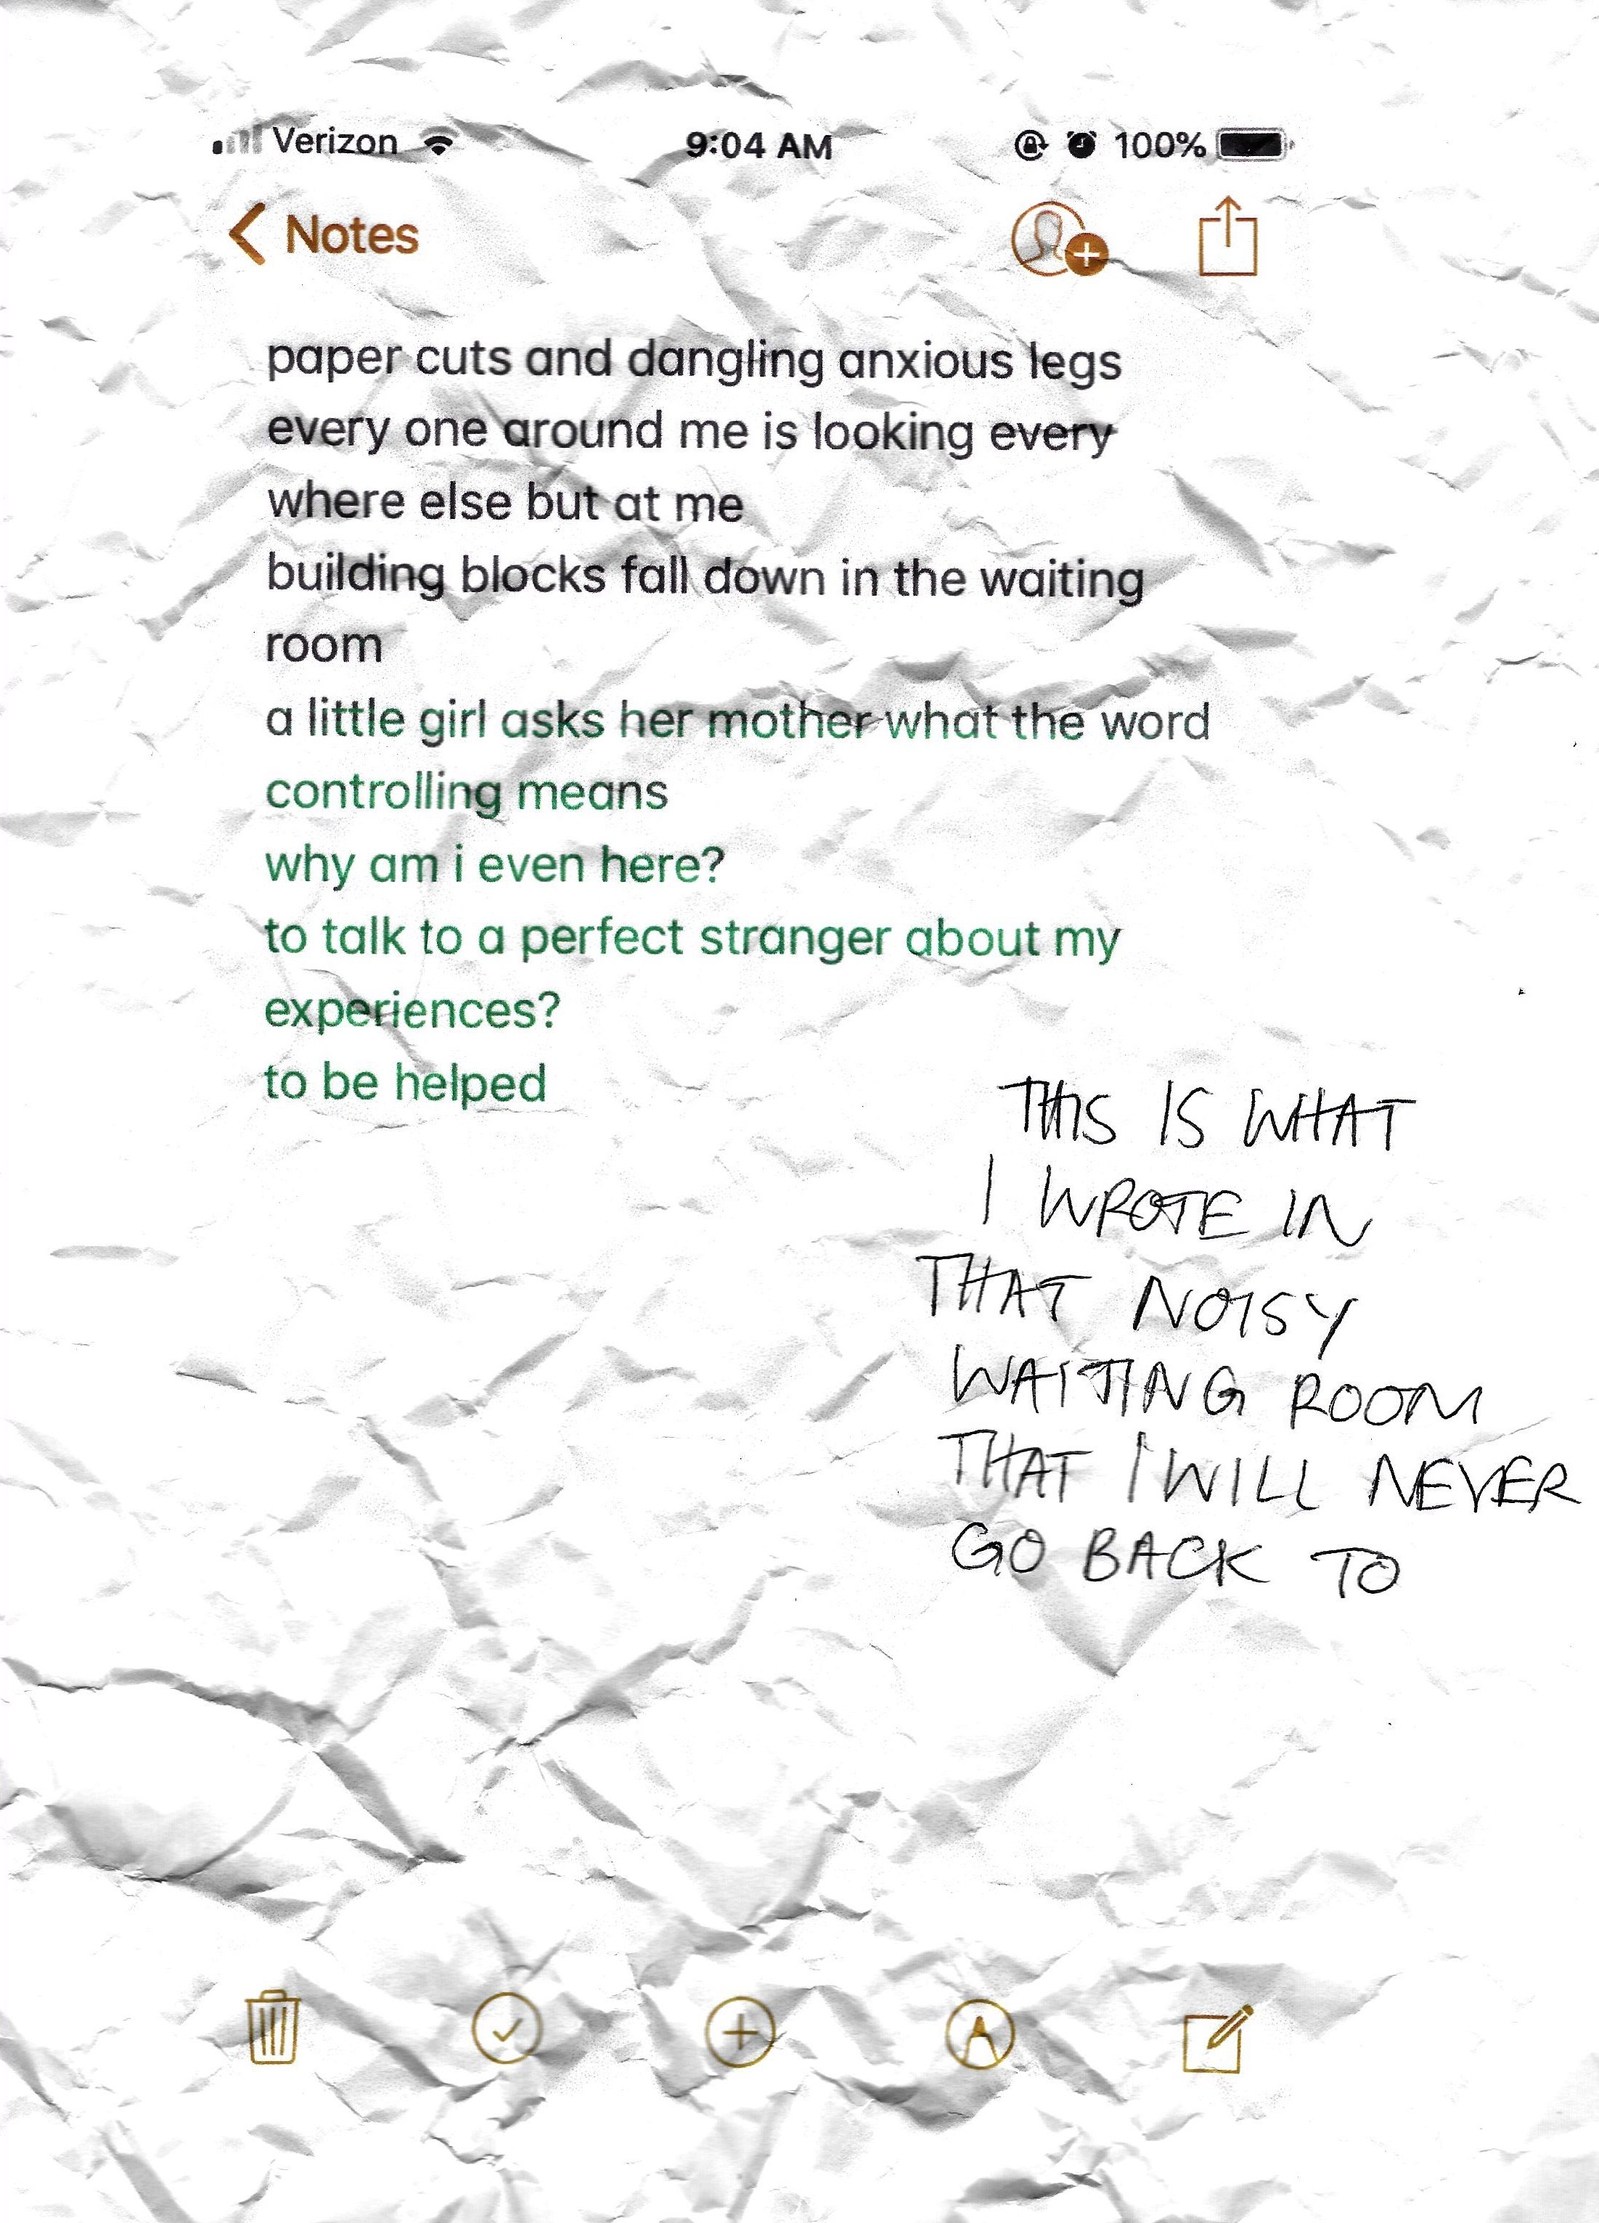 Verizon 9:04 AM 100%
Notes
paper cuts and dangling anxious legs
every one around me is looking every
where else but at me
building blocks fall down in the waiting
room
a little girl asks her mother what the word
controlling means
why am i even here?
to talk to a perfect stranger about my
experiences?
to be helped
THIS IS WHAT
I WROTE IN
THAT NOISY
WAITING ROOM
THAT I WILL NEVER
GO BACK TO